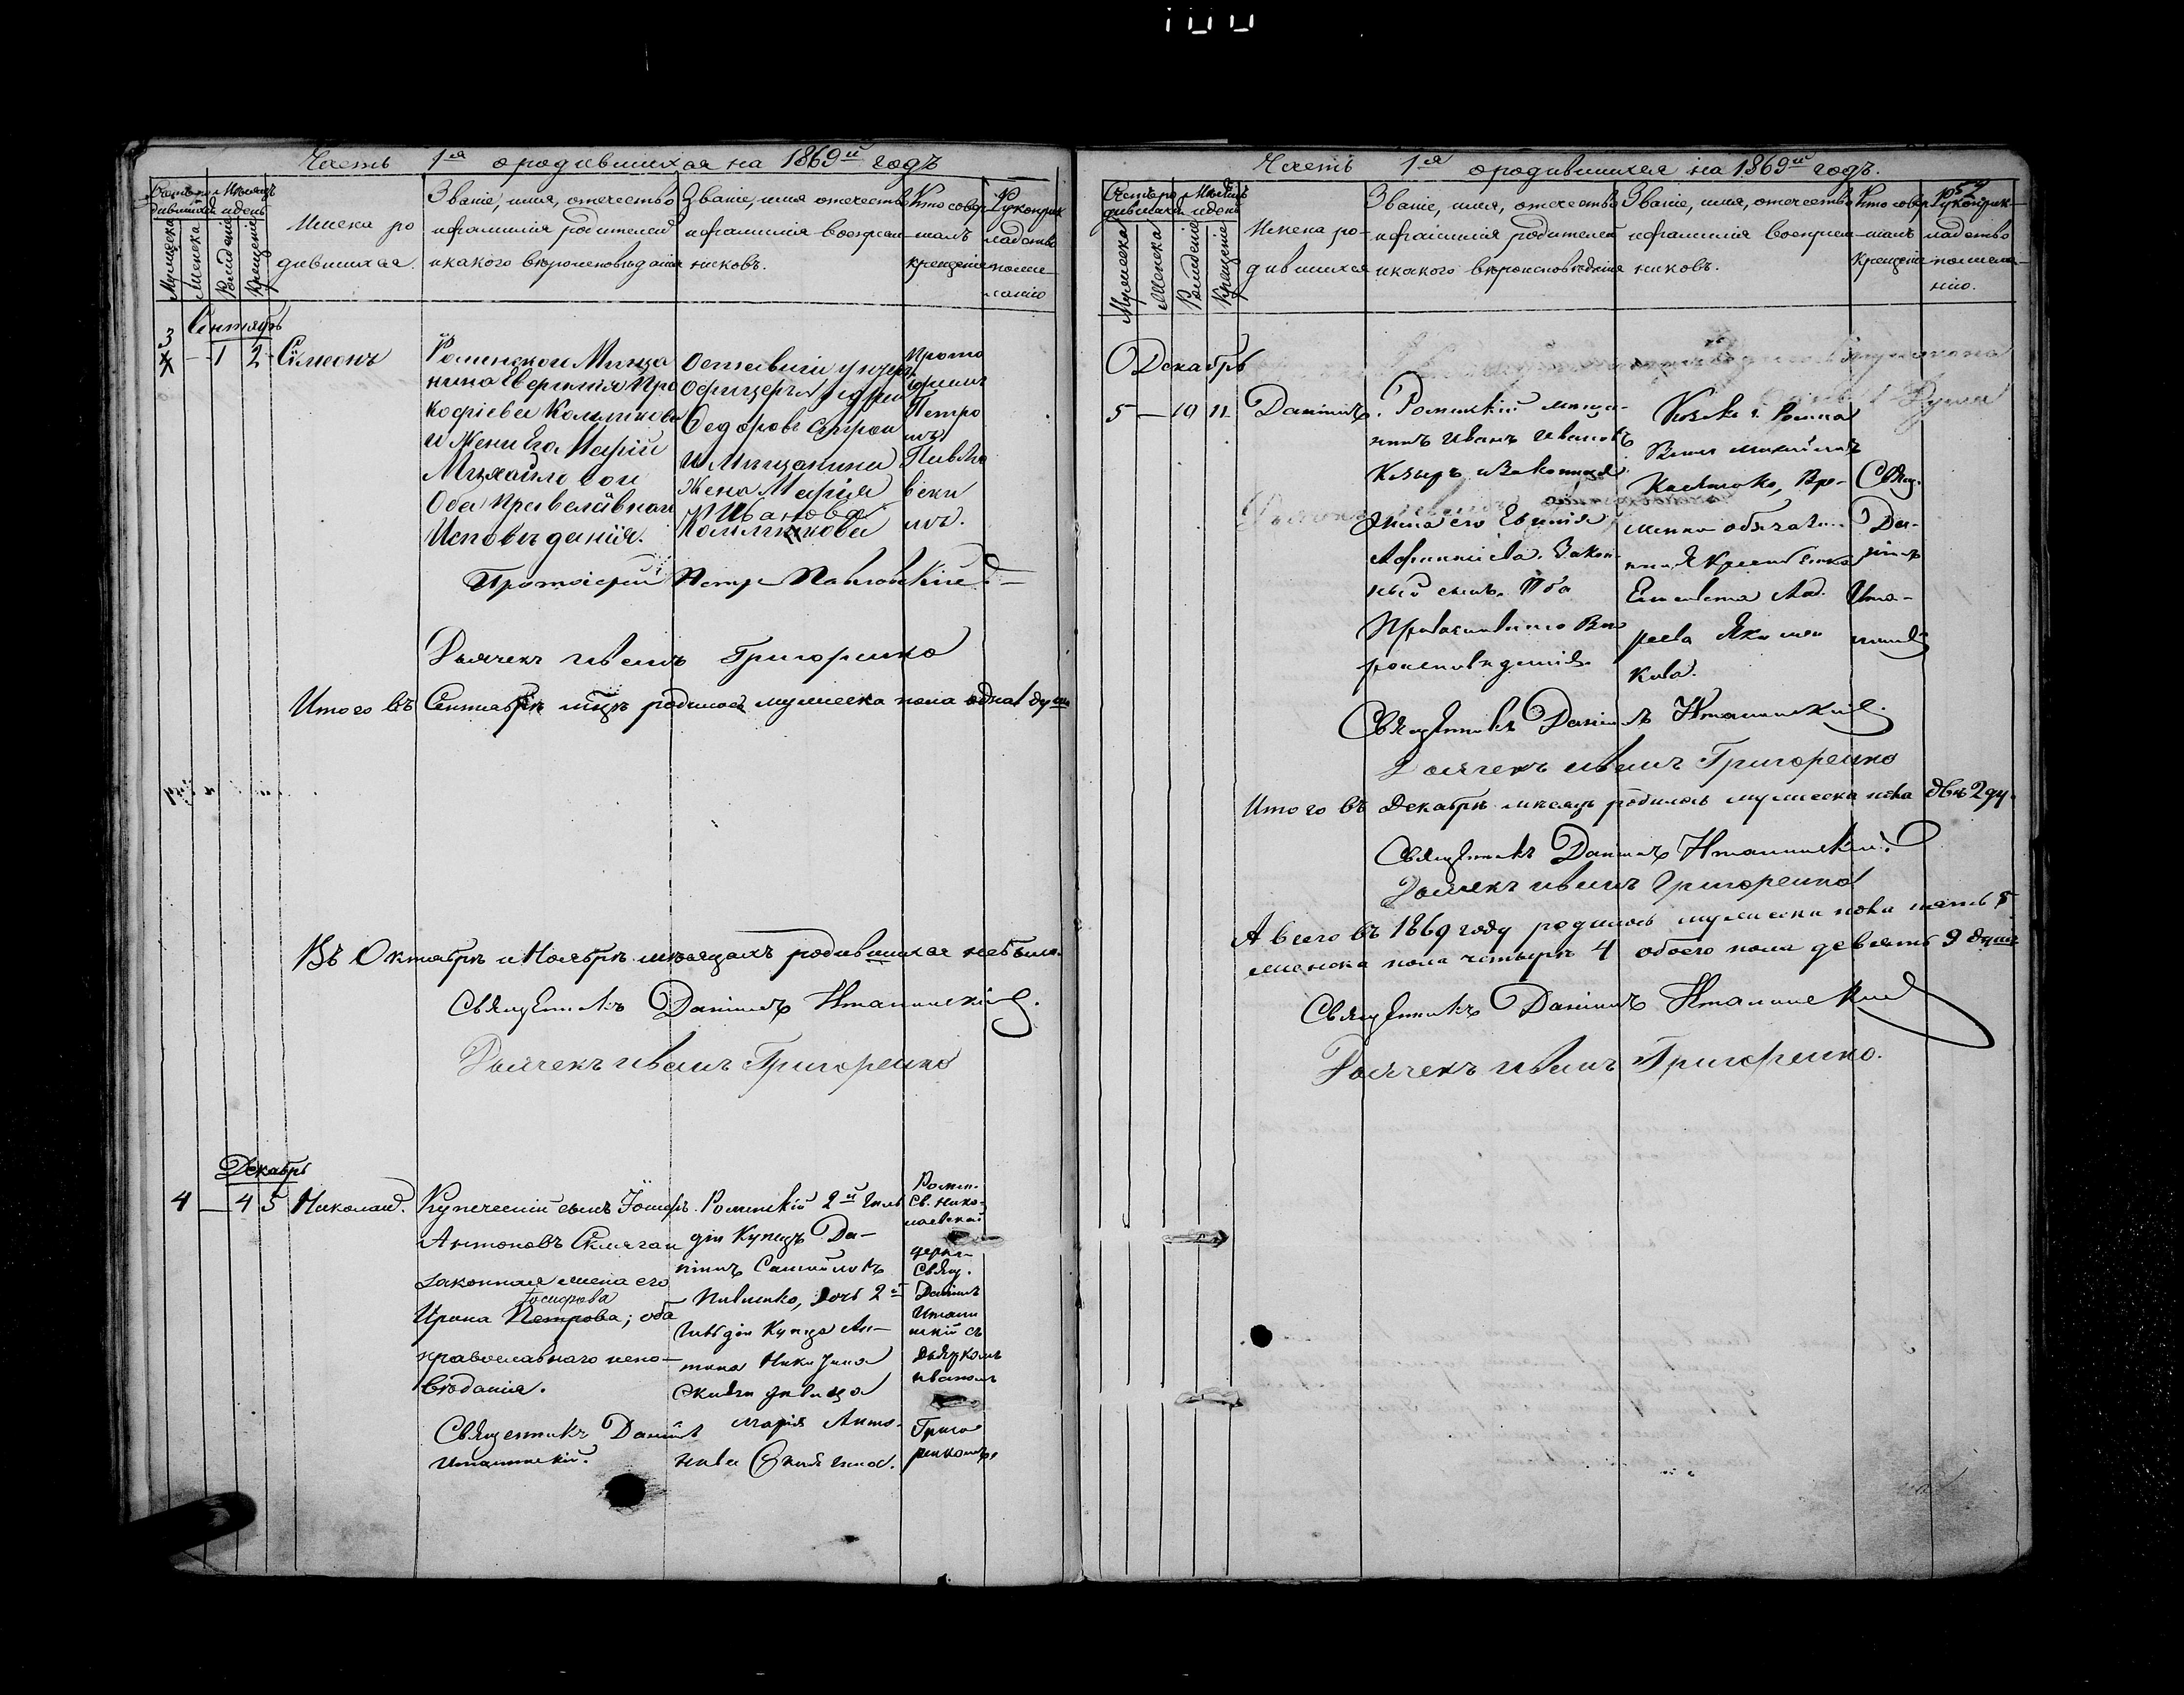 Часть 1я о родившихся на 1869й годъ
Мужеска
Женска
Рожденіе
Крещеніе
Имена ро
дившихся.
Званіе, имя, отечество
и фамилія родителей
и какого вѣроисповѣданія
Званіе, имя отечество
и фамилія воспріем
никовъ.
Кто совер
шалъ
крещеніе
Рукоприк
ладство
Сентябрь
3
1 2 Сѵмеонъ
Роменскои Мѣща
нина
Прo
кофіева
и Жени Его Маріи
Михайловои
Оба Православнаго
Исповѣданія.
Оставшій унтеръ
офицеръ
Федоровъ
и Мѣщанина
Жена Марія
Иванова
Прото
іерей
Петро
мъ
Павло
вски
мъ.
Протоіерей Петръ Павловскій
Дьячекъ Иванъ Григоренко
Итого въ Сентябрѣ мцѣ родилось мужеска пола одна 1 душа
Въ Октябрѣ и Ноябрѣ мѣсяцахъ родившихся небыло.
Священникъ Даніилъ Италинскій.
Дьячекъ Иванъ Григоренко
Декабрь
4 — 4 5 Николай.
Купеческій сынъ Іосифъ
Антоновъ
законная жена его
Іосифова
Ирина Петрова; оба
православнаго испо-
вѣданія.
Священникъ Даніилъ
Италинскій.
Роменскій 2й гиль
діи Купецъ Да-
ніилъ Самойловъ
Павленко, дочь 2й
гильдіи Купца Ан-
тона
дѣвица
Марія Анто-
нова
Ромен.
Св. Нико-
лаевской
церкви
Свящ.
Даніилъ
Италин
скій съ
дьячкомъ
Иваномъ
Григо
ренкомъ.
Часть 1я о родившихся на 1869й годъ.
Мужеска
Женска
Рожденіе
Крещеніе
Имена ро-
дившихся
Званіе, имя, отечество
и фамилія родителей
и какого вѣроисповѣданія
Званіе, имя, отечество
и фамилія воспріем-
никовъ.
Кто совер
шалъ
крещеніе
Рукоприк-
ладство
по жела-
нію.
Декабрь
5 — 10 11 Даніилъ.
Роменскій мѣща-
нинъ Иванъ Ивановъ
и Законная
жена его Евгенія
Закон-
ный сынъ. Оба
Православнаго Вѣ
роисповѣданія.
г. Ромна
Михайловъ
Вре-
менно обяза
Анд
реева
кова.
Свящ.
Да-
ніилъ
Ита-
линскій
Священникъ Даніилъ Италинскій.
Дьячекъ Иванъ Григоренко
Итого въ Декабрѣ мѣсяцѣ родилось мужеска пола двѣ 2 ду.
Священникъ Даніилъ Италинскій.
Дьячекъ Иванъ Григоренко
А всего въ 1869 году родилось мужеска пола пять 5
женска пола четыре 4 обоего пола девять 9 душъ
Священникъ Даніилъ Италинскій
Дьячекъ Иванъ Григоренко.